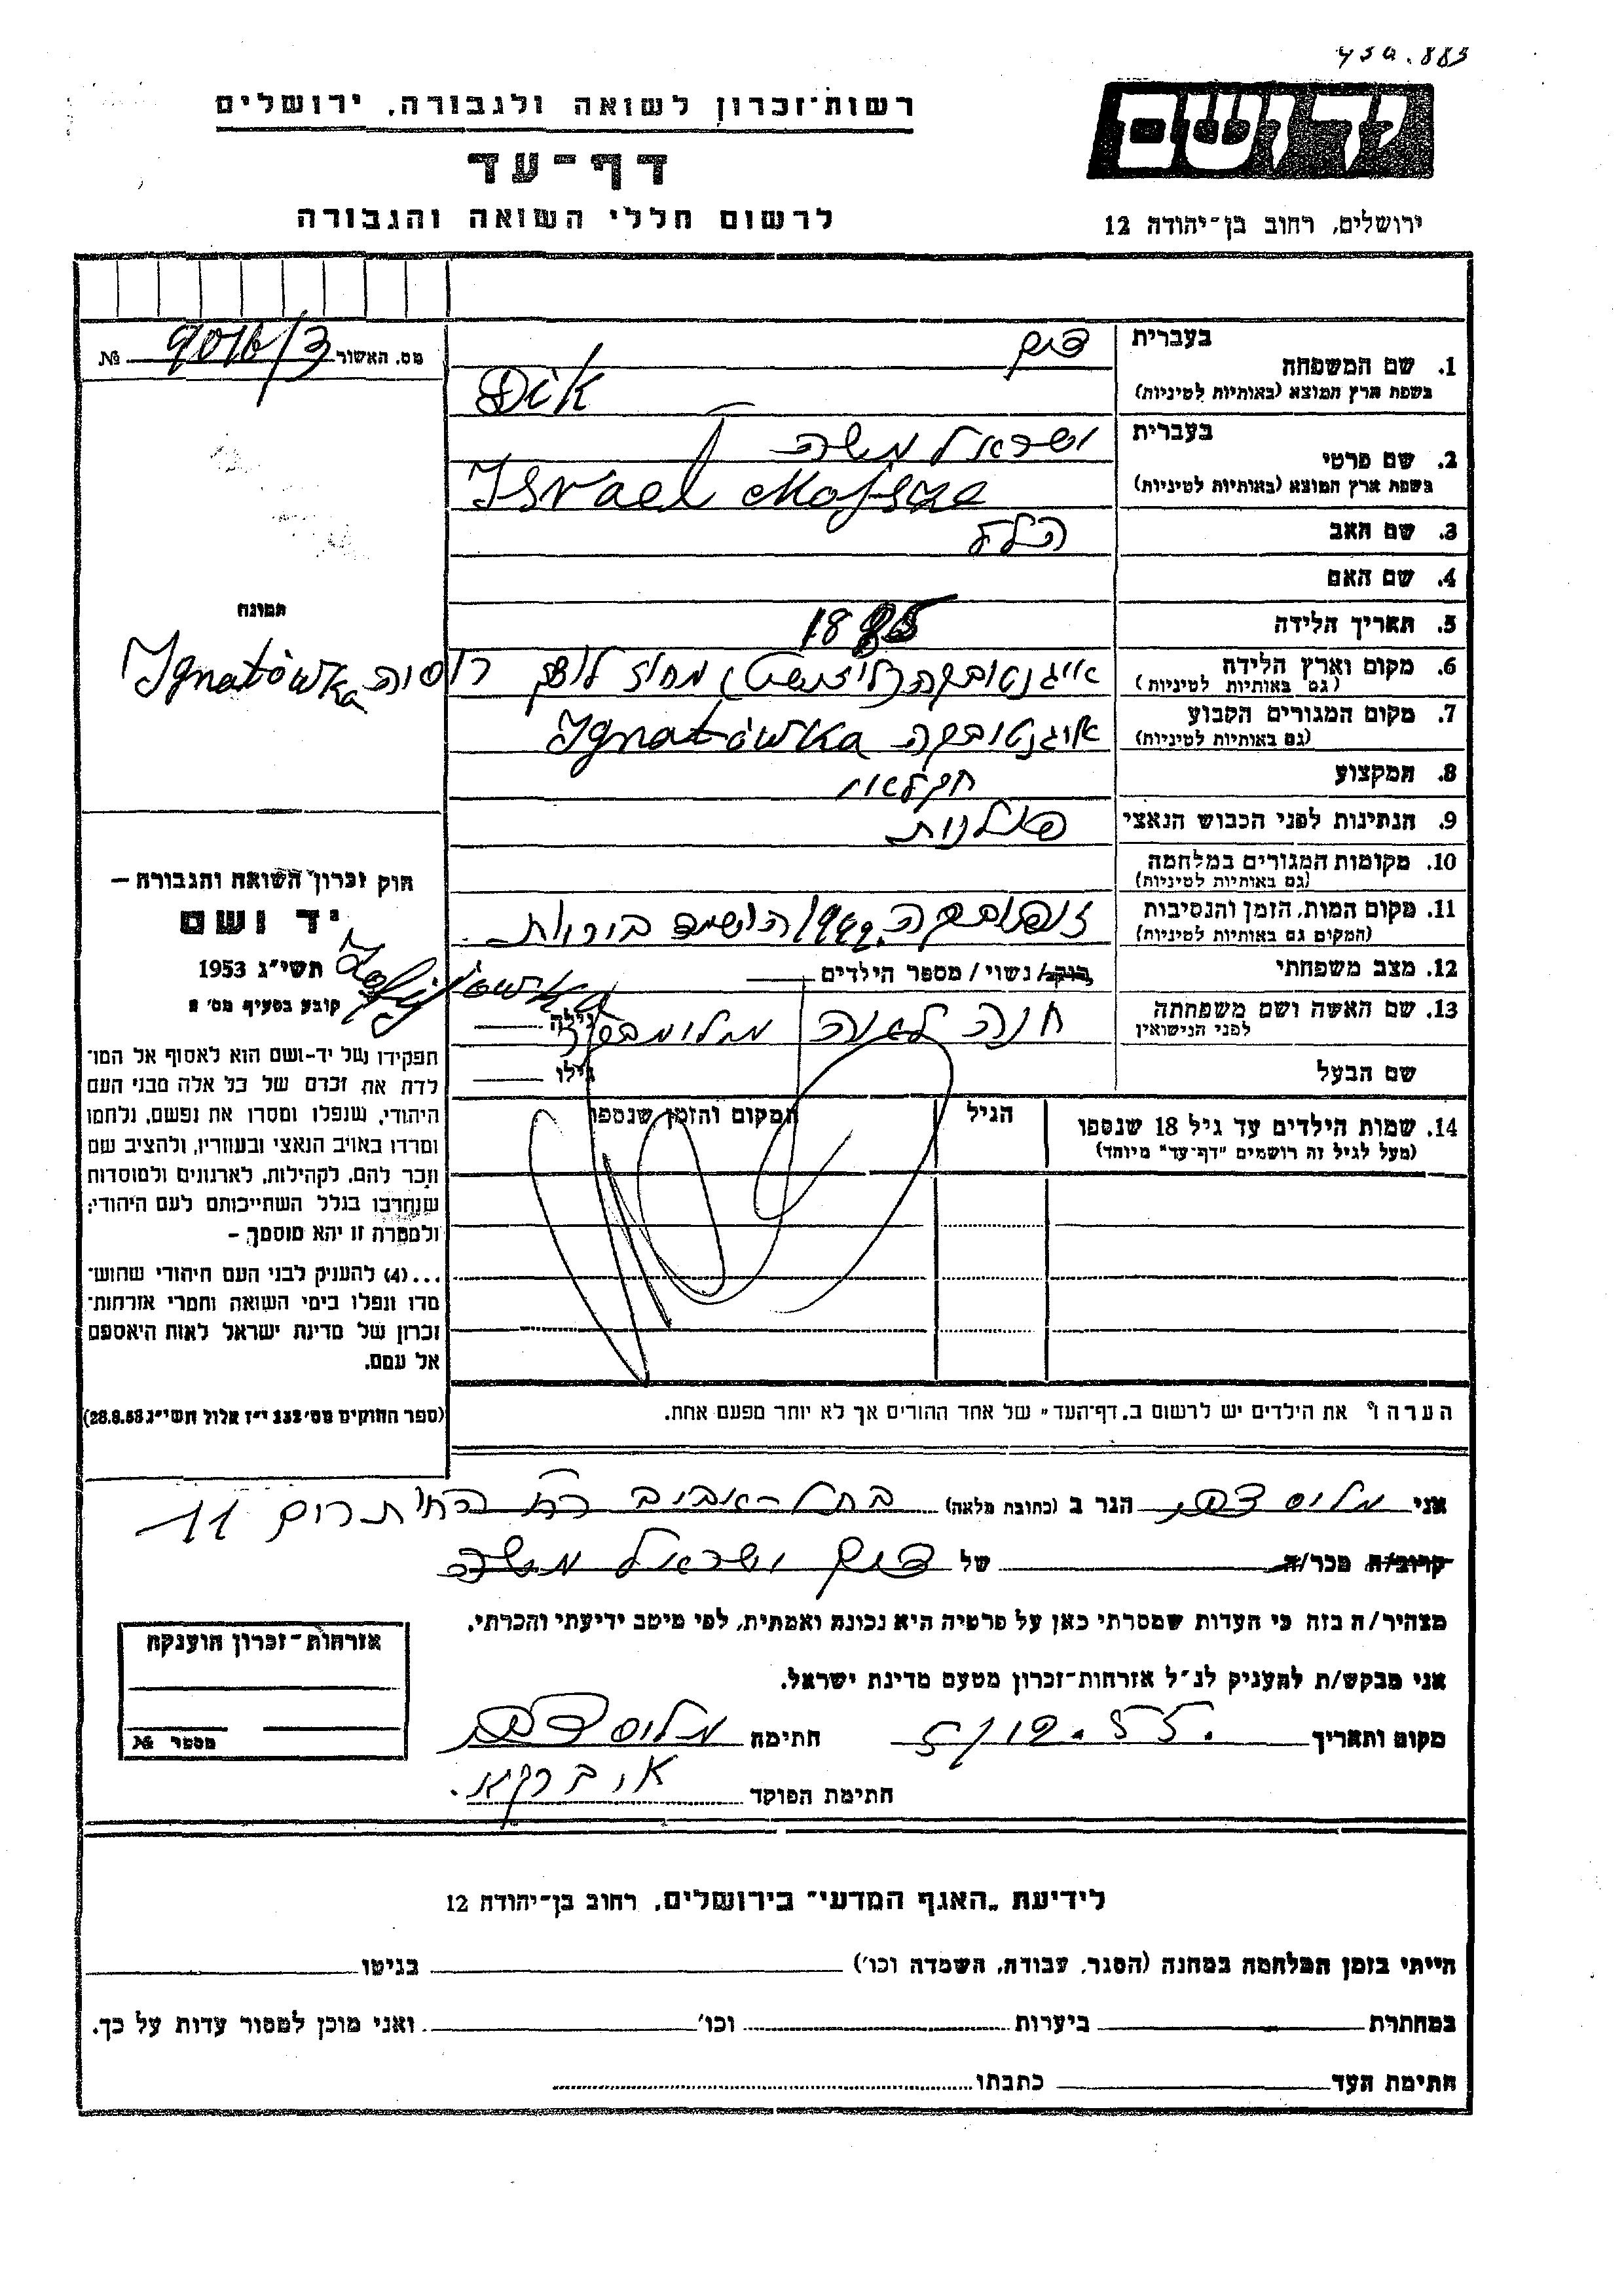 יד ושם
רשות־זכרון לשואה ולגבורה, ירושלים
דף־עד
לרשום חללי השואה והגבורה
ירושלים, רחוב בן־יהודה 12
מס. האשור 9016/3 №
1. שם המשפחה
בעברית דיק
בשפת ארץ המוצא (באותיות לטיניות) Dik
2. שם פרטי
בעברית ישראל משה
בשפת ארץ המוצא (באותיות לטיניות) Israel Mojsze
3. שם האב הלל
4. שם האם
5. תאריך הלידה 1885
6. מקום וארץ הלידה
(גם באותיות לטיניות) מחוז לוצק רוסיה Ignatówka
7. מקום המגורים הקבוע
(גם באותיות לטיניות) איגנטובקה Ignatówka
8. המקצוע חקלאי
9. הנתינות לפני הכבוש הנאצי פולנית
10. מקומות המגורים במלחמה
(גם באותיות לטיניות)
11. מקום המות, הזמן והנסיבות
(המקום גם באותיות לטיניות) 1942 הושמד ביריות
Zofijówka
12. מצב משפחתי רוק/ נשוי / מספר הילדים
13. שם האשה ושם משפחתה
לפני הנישואין חנה לאה גילה
שם הבעל גילו
14. שמות הילדים עד גיל 18 שנספו הגיל המקום והזמן שנספו
(מעל לגיל זה רושמים "דף־עד" מיוחד)
הערה: את הילדים יש לרשום ב"דף־העד" של אחד ההורים אך לא יותר מפעם אחת.
תמונה
חוק זכרון השואה והגבורה –
יד ושם
תשי״ג 1953
קובע בסעיף מס׳ 2
תפקידו של יד־ושם הוא לאסוף אל המו־
לדת את זכרם של כל אלה מבני העם
היהודי, שנפלו ומסרו את נפשם, נלחמו
ומרדו באויב הנאצי ובעוזריו, ולהציב שם
וזכר להם, לקהילות, לארגונים ולמוסדות
שנחרבו בגלל השתייכותם לעם היהודי;
ולמטרה זו יהא מוסמך –
...(4) להעניק לבני העם היהודי שהוש־
מדו ונפלו בימי השואה והמרי אזרחות־
זכרון של מדינת ישראל לאות היאספם
אל עמם.
(ספר החוקים מס׳ 132 י״ז אלול תשי״ג 28.8.53)
אני הגר ב (כתובת מלאה) בתל־אביב 11
קרוב/ה מכר/ה של דיק ישראל משה
מצהיר/ה בזה כי העדות שמסרתי כאן על פרטיה היא נכונה ואמתית, לפי מיטב ידיעתי והכרתי.
אני מבקש/ת להעניק לנ״ל אזרחות־זכרון מטעם מדינת ישראל.
מקום ותאריך חתימה
חתימת הפוקד
אזרחות־זכרון הוענקה
מספר №
לידיעת "האגף המדעי" בירושלים, רחוב בן־יהודה 12
הייתי בזמן המלחמה במחנה (הסגר, עבודה, השמדה וכו׳) בגיטו
במחתרת ביערות וכו׳ ואני מוכן למסור עדות על כך.
חתימת העד כתבתו